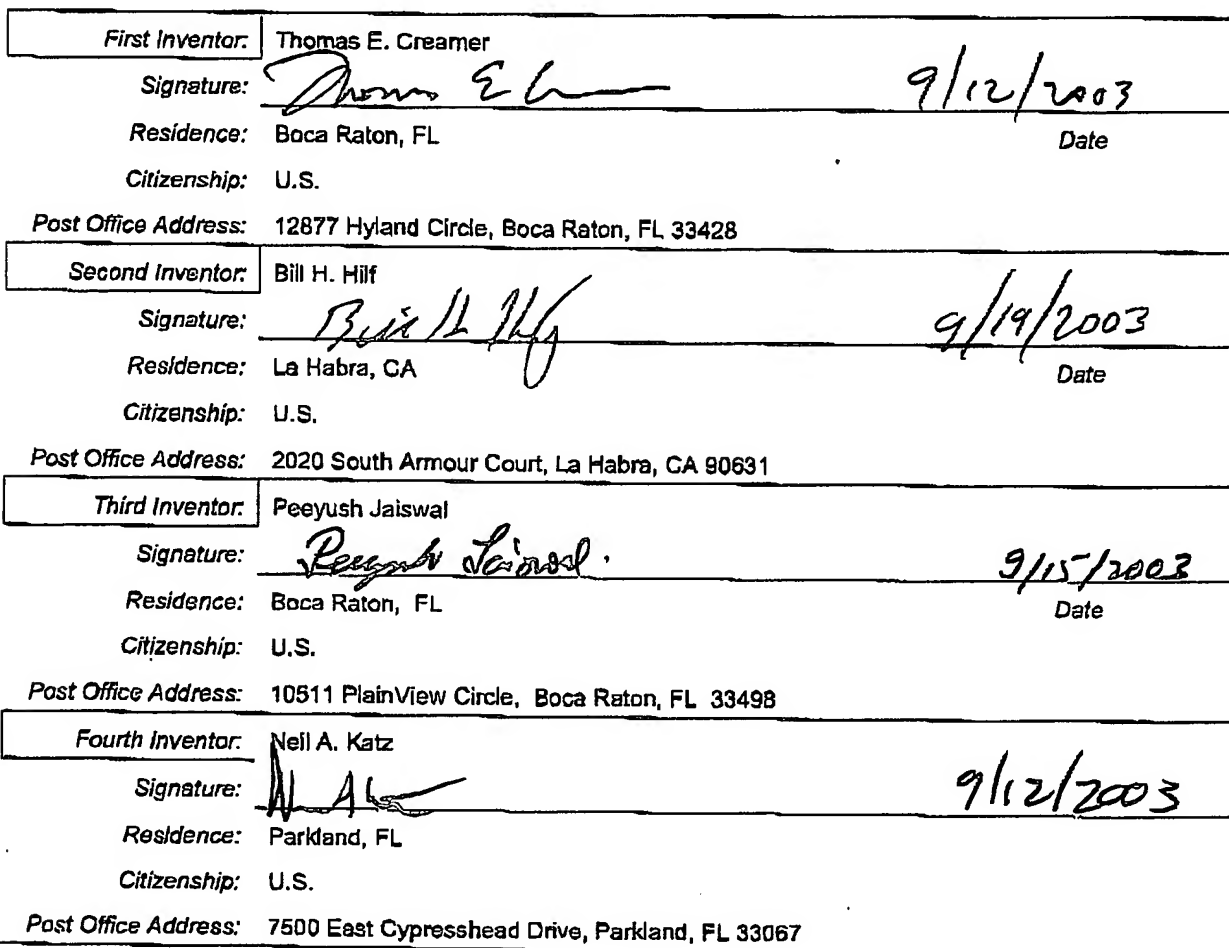 First Inventor: Thomas E. Creamer
Signature: Thomas E C 9/12/2003
Residence: Boca Raton, FL Date
Citizenship: U.S.
Post Office Address: 12877 Hyland Circle, Boca Raton, FL 33428
Second Inventor: Bill H. Hilf
Signature: Bill H Hilf 9/19/2003
Residence: La Habra, CA Date
Citizenship: U.S.
Post Office Address: 2020 South Armour Court, La Habra, CA 90631
Third Inventor: Peeyush Jaiswal
Signature: Peeyush Jaiswal. 9/15/2003
Residence: Boca Raton, FL Date
Citizenship: U.S.
Post Office Address: 10511 PlainView Circle, Boca Raton, FL 33498
Fourth Inventor: Neil A. Katz
Signature: 9/12/2003
Residence: Parkland, FL
Citizenship: U.S.
Post Office Address: 7500 East Cypresshead Drive, Parkland, FL 33067